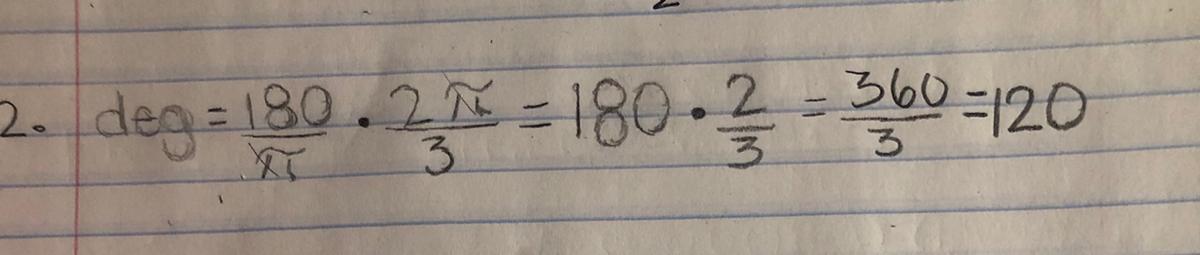 2. deg = 180/π · 2π/3 = 180 · 2/3 = 360/3 = 120